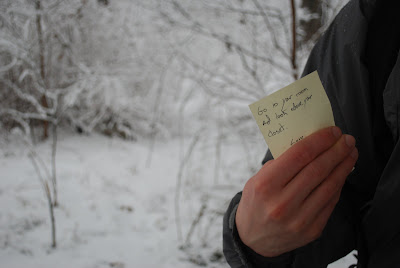 Go in your room
And look above your
Closet.